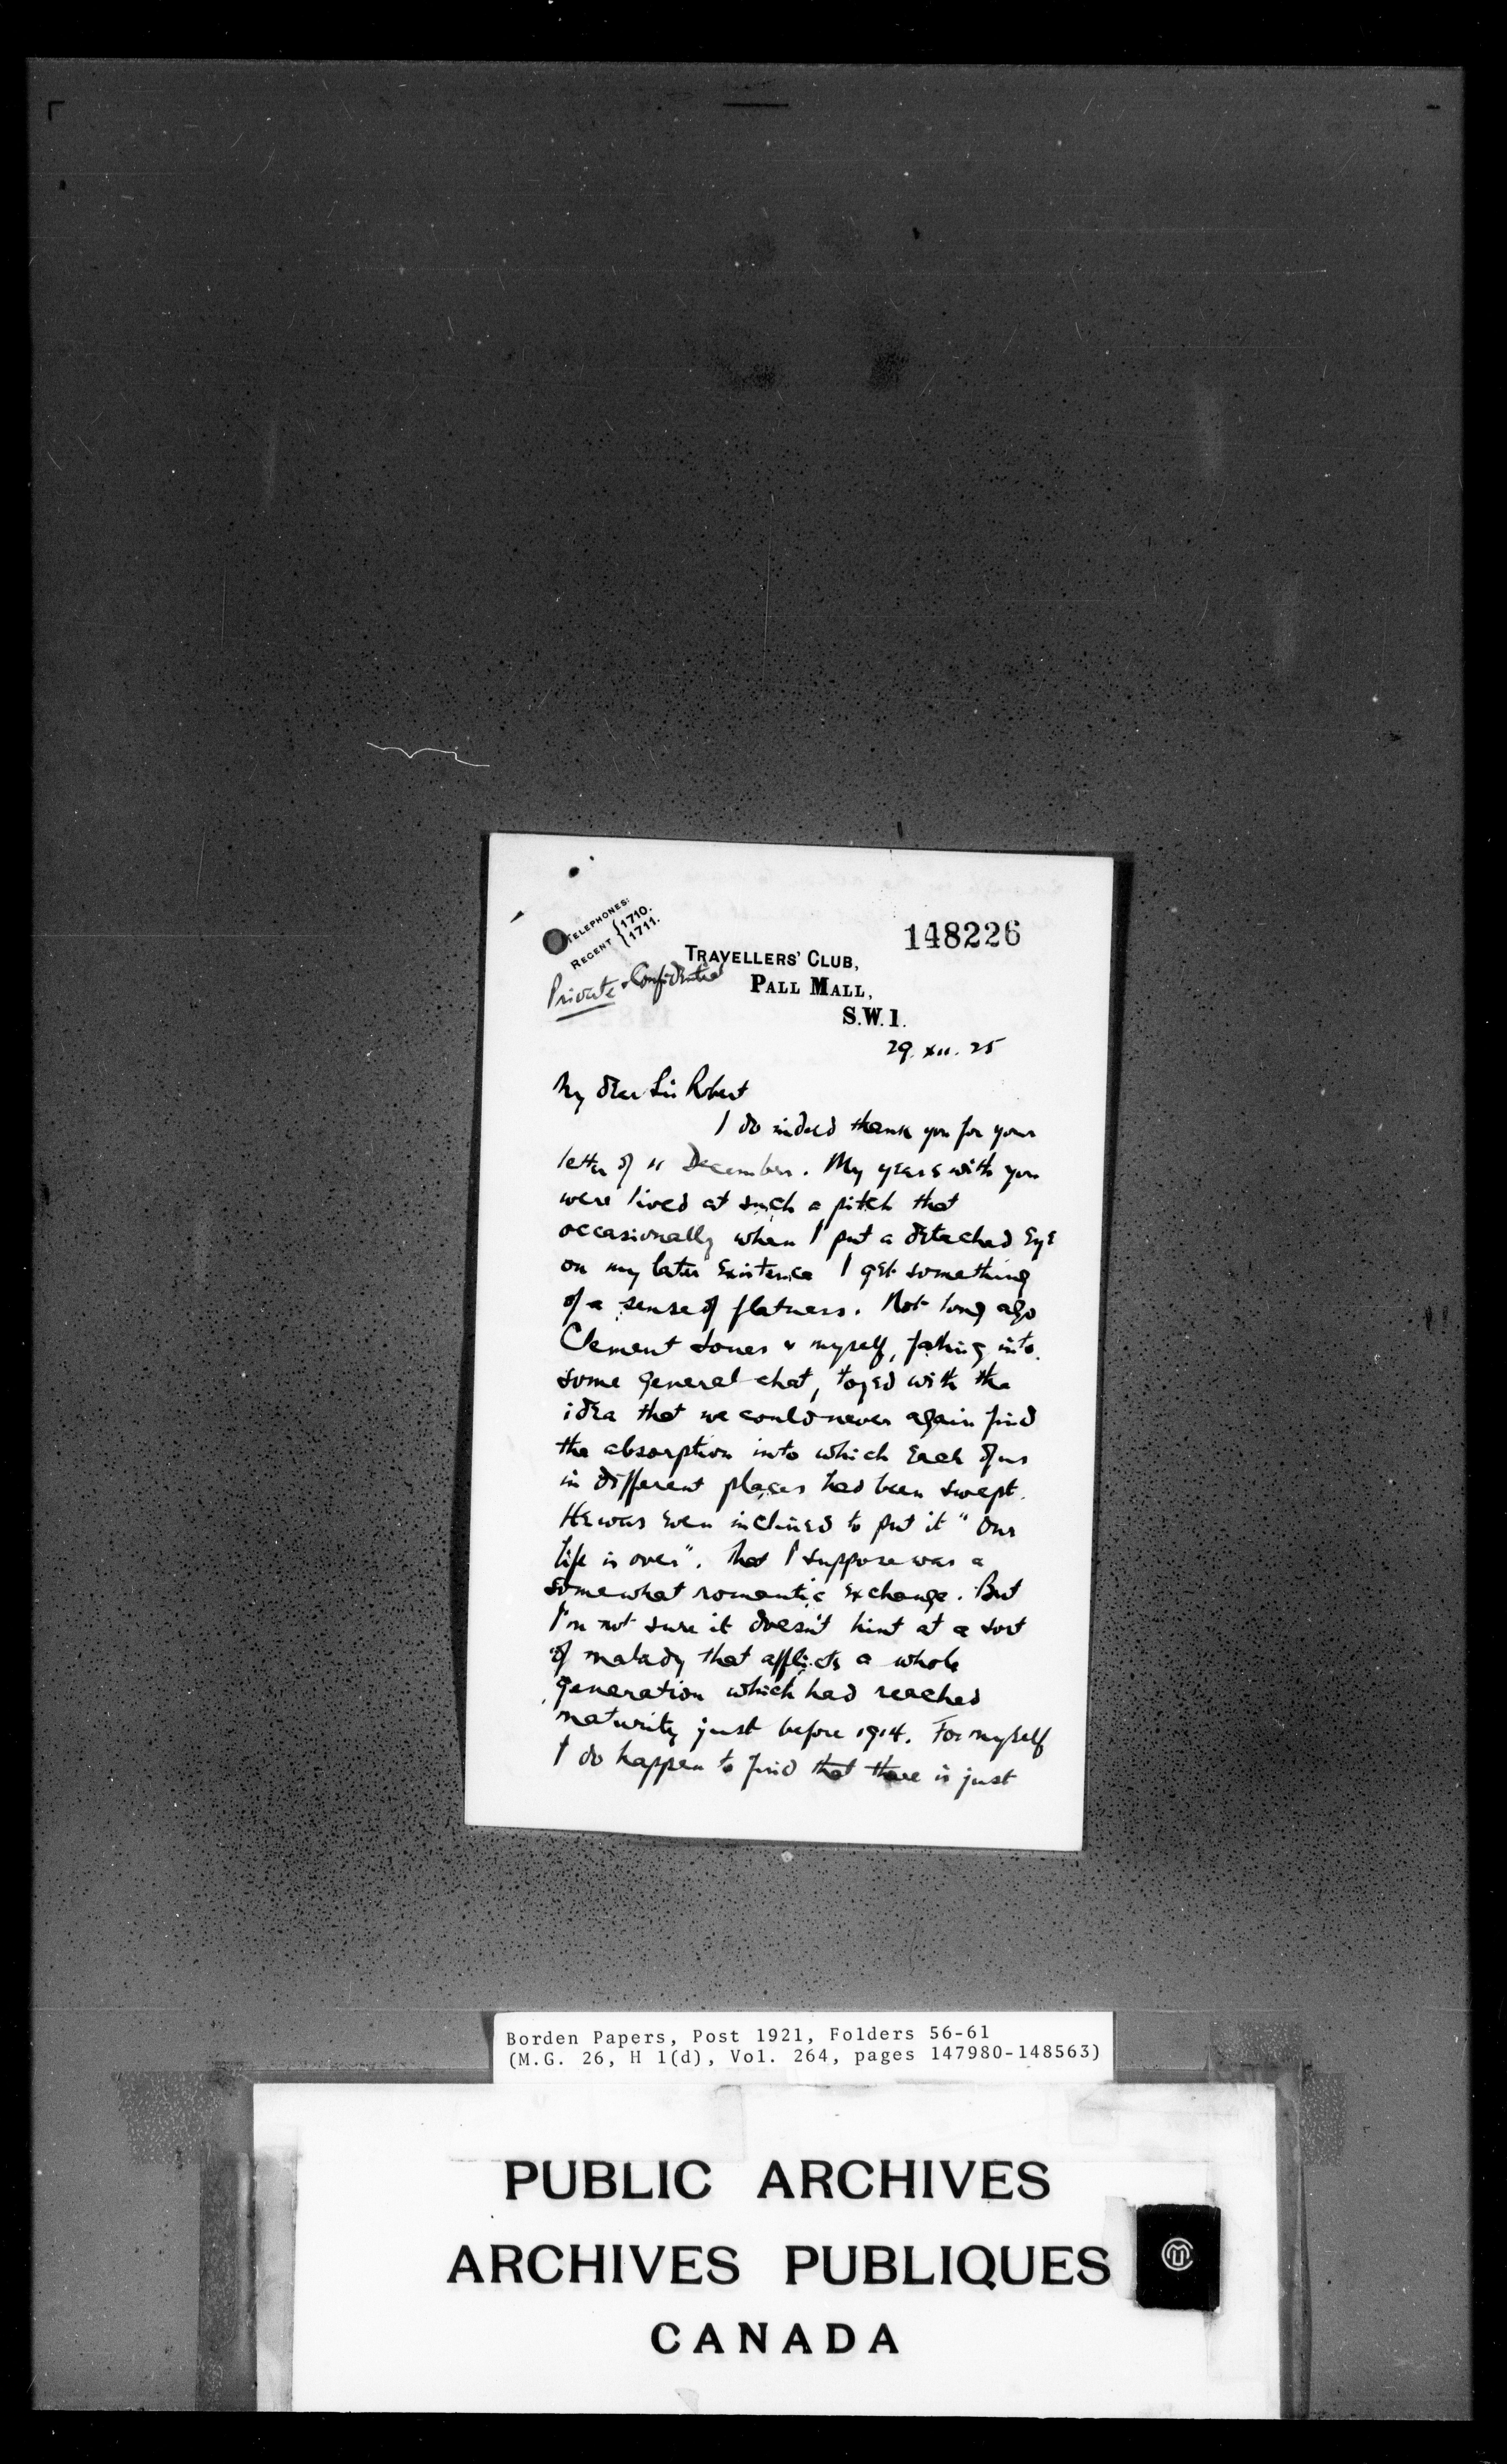 TELEPHONES:
REGENT {1710.
{1711.
148226
TRAVELLERS' CLUB,
Private & Confidential
PALL MALL,
S.W.1.
29. XII. 25
My dear Sir Robert
I do indeed thank you for your
letter of 11 December. My years with you
were lived at such a pitch that
occasionally when I put a detached eye
on my later existence I get something
of a sense of flatness. Not long ago
Clement Jones & myself, falling into
some general chat, toyed with the
idea that we could never again find
the absorption into which each of us
in different places had been swept.
He was even inclined to put it "Our
life is over". That I suppose was a
somewhat romantic exchange. But
I'm not sure it doesn't hint at a sort
of malady that afflicts a whole
generation which had reached
maturity just before 1914. For myself
I do happen to find that there is just
Borden Papers, Post 1921, Folders 56-61
(M.G. 26, H 1(d), Vol. 264, pages 147980-148563)
PUBLIC ARCHIVES
ARCHIVES PUBLIQUES
CANADA